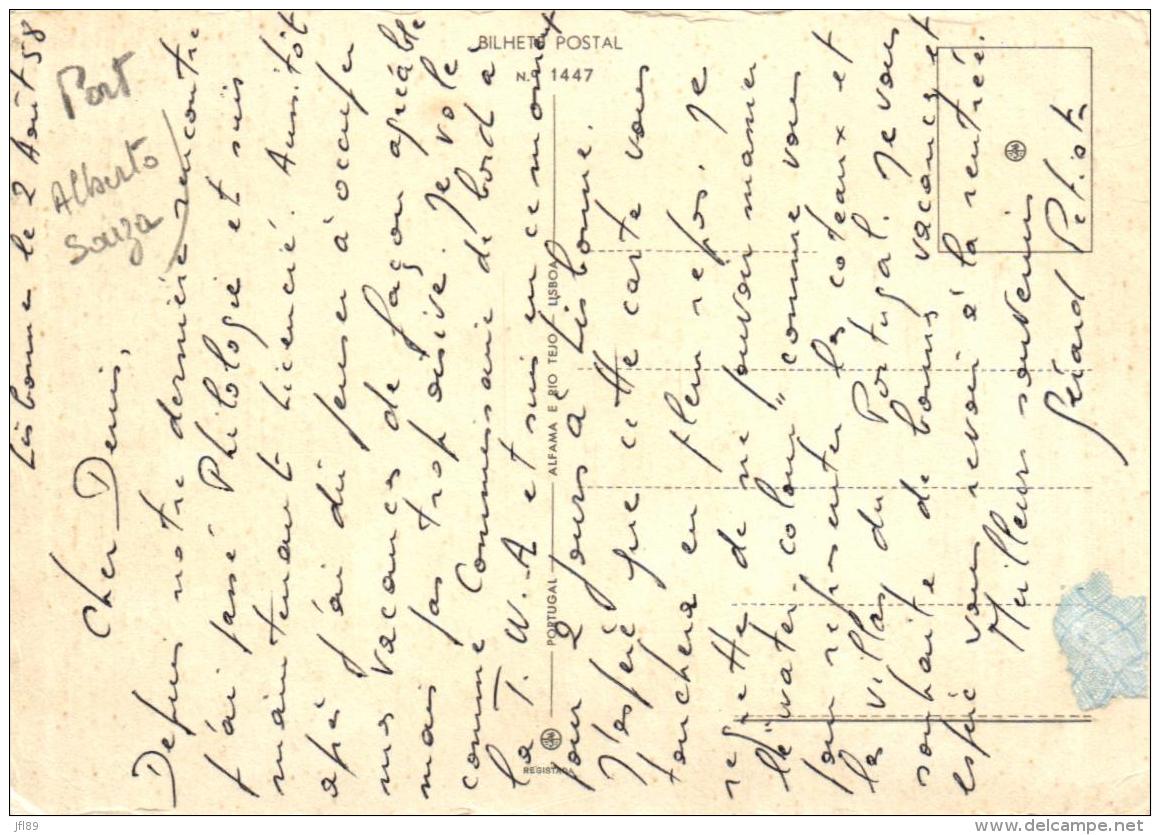 Lisbonne le 2 Août 58
Cher Denis,
Depuis notre dernière rencontre
j'ai passé Philologie et suis
maintenant licencié. Aussitôt
après j'ai dû penser à occuper
mes vacances de façon agréable
mais pas trop oisive. Je vole
comme Commissaire de bord à
la T.W.A et suis en ce moment
pour 2 jours à Lisbonne.
J'espère que cette carte vous
touchera en plein repos. Je
regrette de ne pouvoir manier
l'"water-colour" comme vous
pour représenter les coteaux et
les villas du Portugal. Je vous
souhaite de bonnes vacances et
espère vous revoir à la rentrée.
Meilleurs souvenirs
Gérard Petiot
Port
Alberto
Souza
BILHETE POSTAL
N.º 1447
PORTUGAL — ALFAMA E RIO TEJO — LISBOA
REGISTADA
jfl89
www.delcampe.net